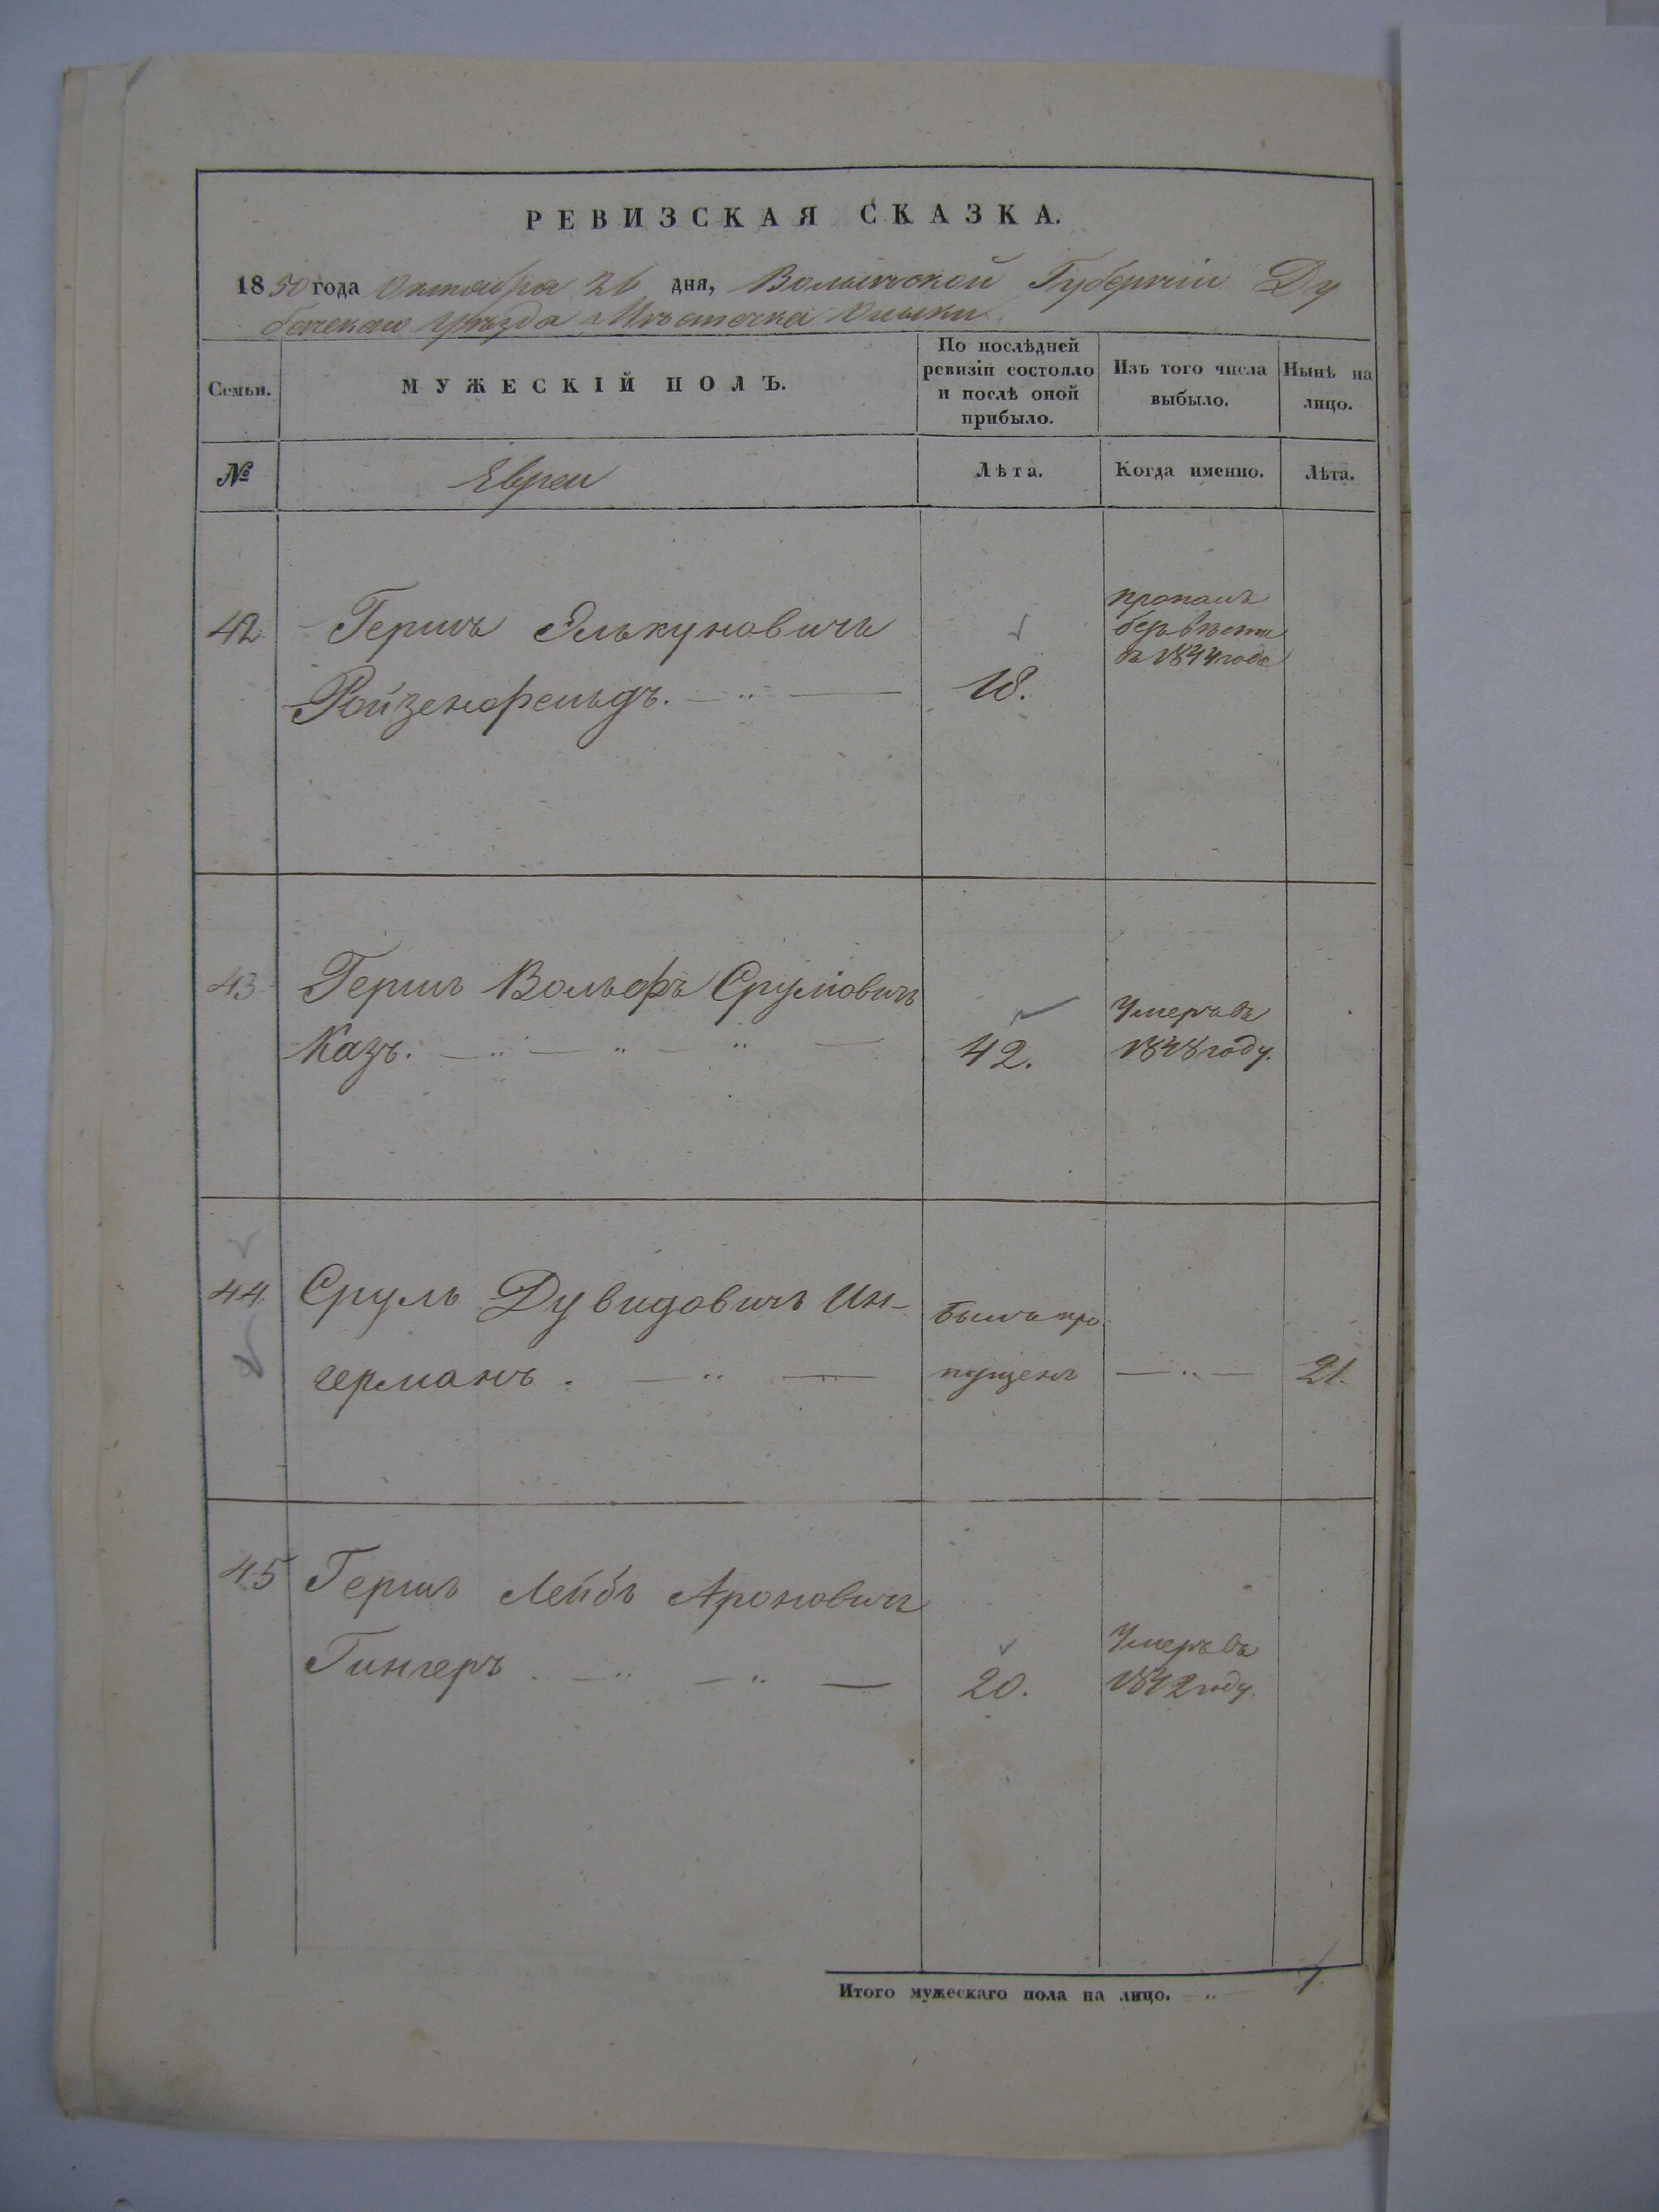 РЕВИЗСКАЯ СКАЗКА.
1850 года Октября 26 дня, Волынской Губерніи Ду
бенскаго Уѣзда Мѣстечка Олыки.
Семьи.
МУЖЕСКІЙ ПОЛЪ.
По послѣдней
ревизіи состояло
и послѣ оной
прибыло.
Изъ того числа
выбыло.
Нынѣ на
лицо.
№
Евреи
Лѣта.
Когда именно.
Лѣта.
42
Гершъ Элькуновичъ
Ройзенфельдъ.
18.
пропалъ
безъ вѣсти
въ 1844 года
43
Гершъ Вольфъ Сруліовичъ
Казъ.
42.
Умеръ въ
1848 году.
44.
Сруль Дувидовичъ Ин-
германъ.
былъ про-
пущенъ
21.
45
Гершъ Лейбъ Ароновичъ
Гингеръ
20.
Умеръ въ
1842 году.
Итого мужескаго пола на лицо. 1